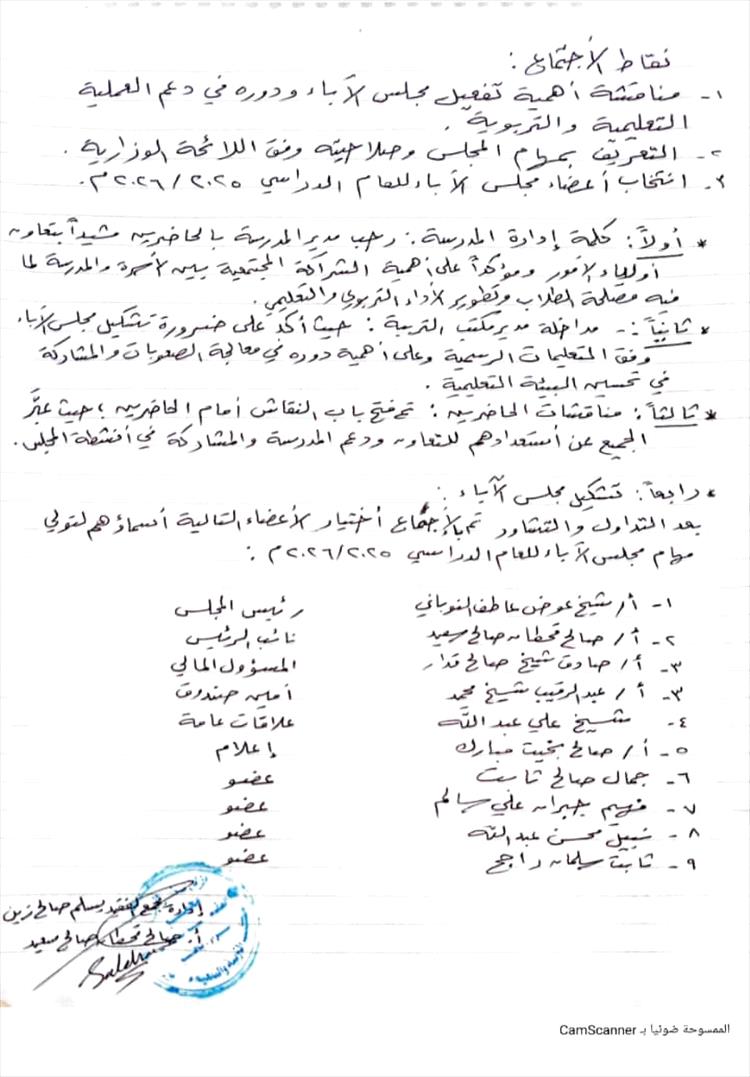 نقاط الأجتماع :
١- مناقشة أهمية تفعيل مجلس الآباء ودوره في دعم العملية
التعليمية والتربوية .
٢- التعريف بمهام المجلس وصلاحيته وفق اللائحة الوزارية .
٣- انتخاب أعضاء مجلس الأباء للعام الدراسي ٢٠٢٥/٢٠٢٦م.
* أولاً : كلمة إدارة المدرسة : رحب مدير المدرسة بالحاضرين مشيداً بتعاون
أولياء الأمور ومؤكداً على أهمية الشراكة المجتمعية بين الأسرة والمدرسة لما
فيه مصلحة الطلاب وتطوير الأداء التربوي والتعليمي .
* ثانياً :- مداخلة مدير مكتب التربية : حيث أكد على ضرورة تشكيل مجلس الآباء
وفق التعليمات الرسمية وعلى أهمية دوره في معالجة الصعوبات والمشاركة
في تحسين البيئة التعليمية .
* ثالثاً : مناقشات الحاضرين : تم فتح باب النقاش أمام الحاضرين ، حيث عبَّر
الجميع عن أستعدادهم للتعاون ودعم المدرسة والمشاركة في أنشطة المجلس .
* رابعاً : تشكيل مجلس الآباء :
بعد التداول والتشاور تم بالأجماع أختيار الأعضاء التالية أسماؤهم لتولي
مهام مجلس الآباء للعام الدراسي ٢٠٢٥/٢٠٢٦م :
١- أ/ شيخ عوض عاطف النوباني رئيس المجلس
٢- أ/ صالح قحطان صالح سعيد نائب الرئيس
٣- أ/ صادق شيخ صالح قدار المسؤول المالي
٣- أ/ عبدالرقيب شيخ محمد أمين صندوق
٤- شيخ علي عبدالله علاقات عامة
٥- أ/ صالح بخيت مبارك إعلام
٦- جمال صالح ثابت عضو
٧- فهيم جبران علي سالم عضو
٨- نبيل محسن عبدالله عضو
٩- ثابت سلمان راجح عضو
إدارة مجمع الفقيد يسلم صالح زين
أ. صالح قحطان صالح سعيد
Saleh
الممسوحة ضوئيا بـ CamScanner